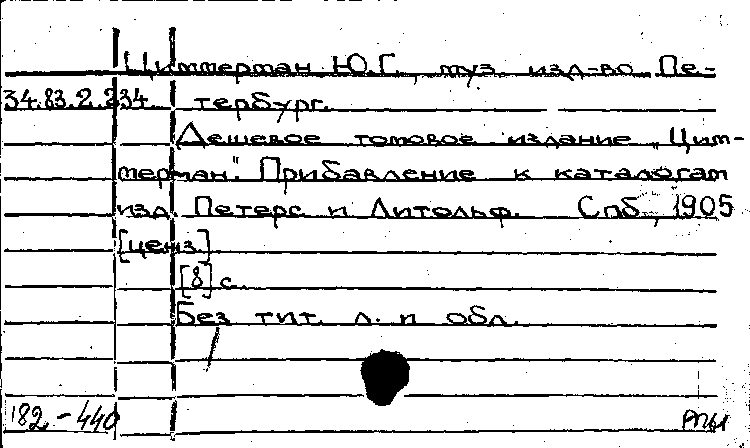 Циммерман Ю.Г., муз. изд-во. Пе-
34.83.2.234 тербург.
Дешевое томовое издание „Цим-
мерман". Прибавление к каталогам
изд. Петерс и Литольф. Спб., 1905
[ценз.]
[8] с.
Без тит. л. и обл.
182-440